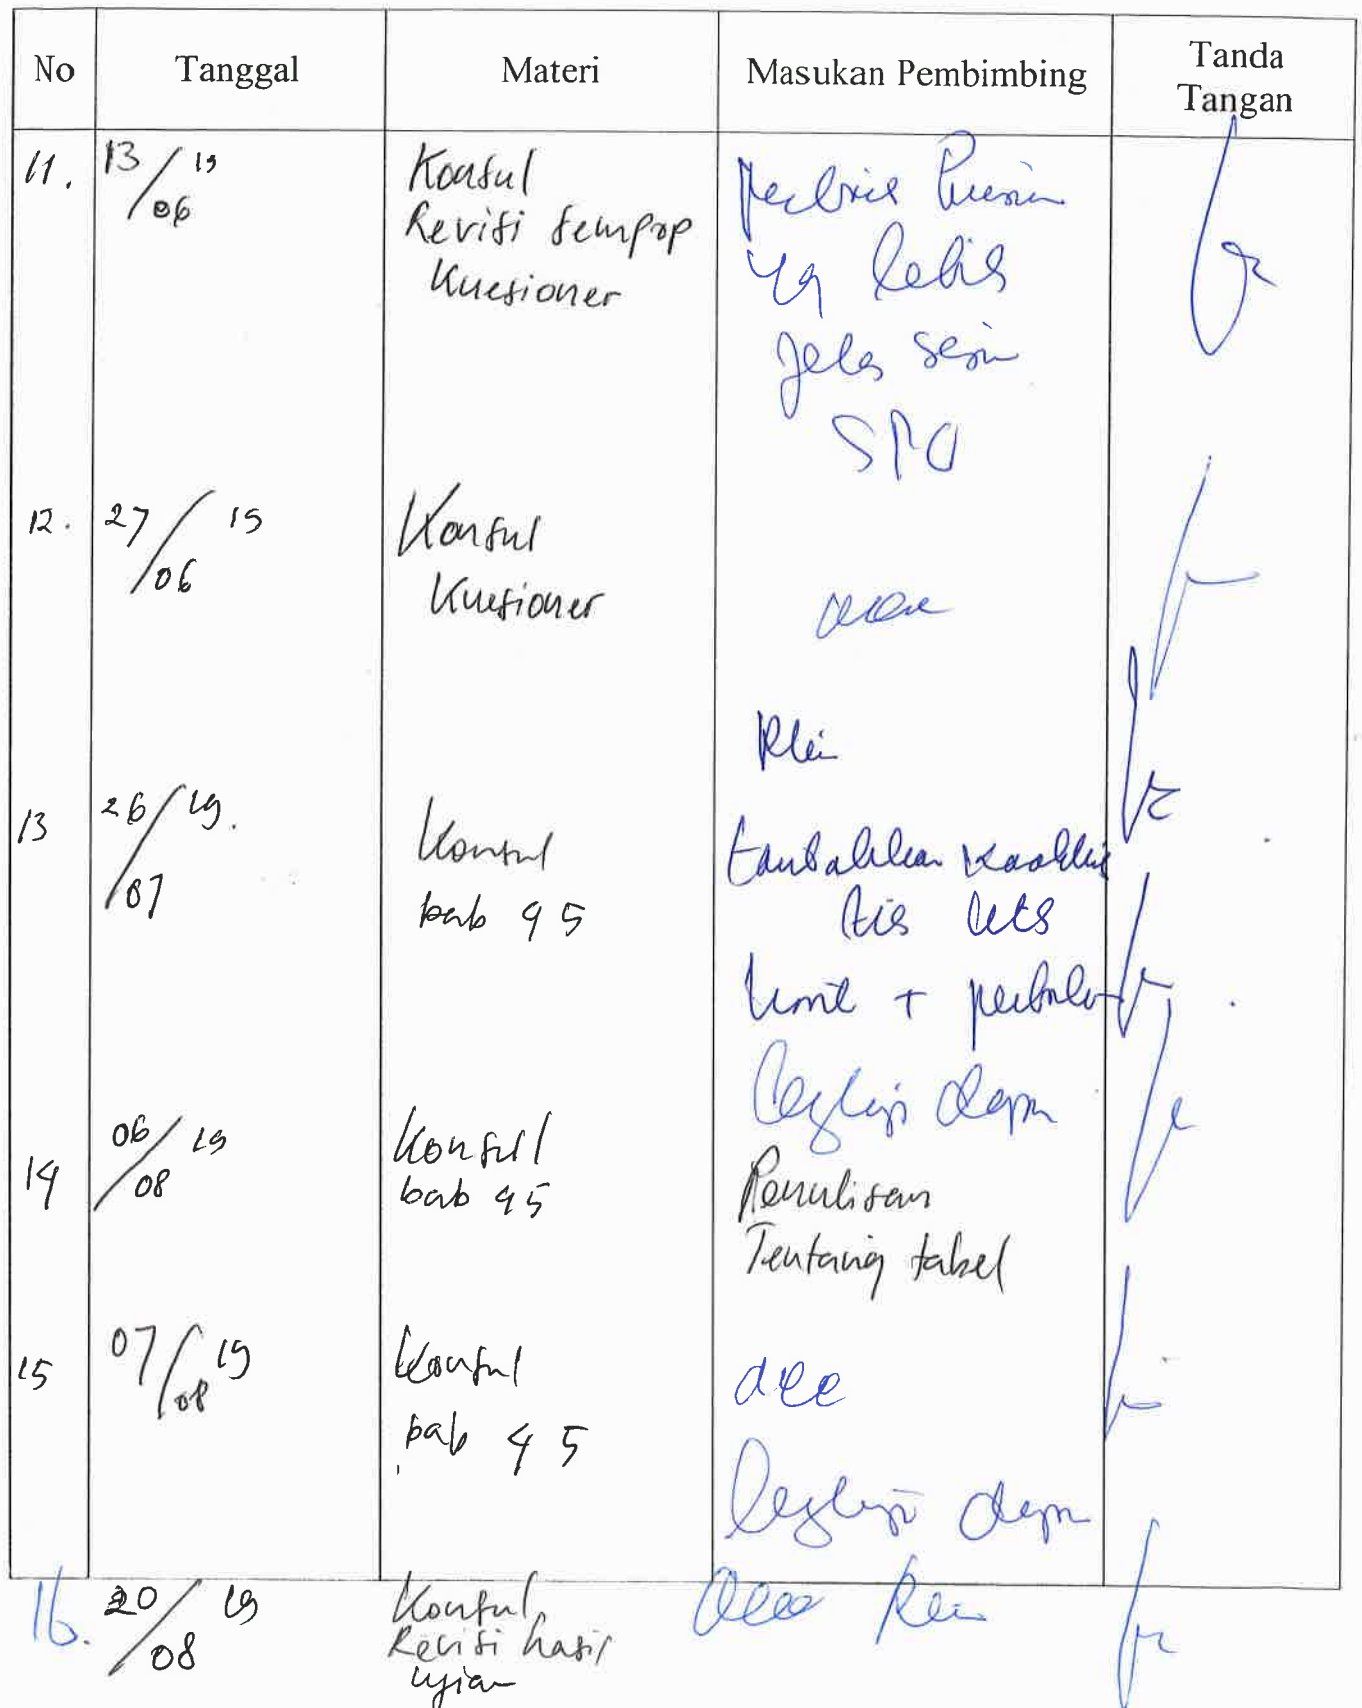 No Tanggal Materi Masukan Pembimbing Tanda
Tangan
11. 13/06 19 Konsul
Revisi Sempop
Kuesioner
yg lebih
jelas
SPO
12. 27/06 19 Konsul
Kuesioner
acc
13 26/07 19. Konsul
bab 4 5
tambahkan
+
lengkapi
14 06/08 19 Konsul
bab 4 5
Penulisan
Tentang tabel
15 07/08 19 Konsul
bab 4 5
acc
lengkapi
16. 20/08 19 Konsul
Revisi hasil
ujian
acc